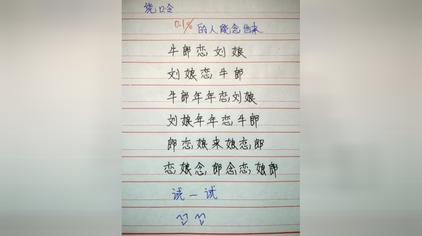 绕口令
0.1%的人能念出来
牛郎恋刘娘
刘娘恋牛郎
牛郎年年恋刘娘
刘娘年年恋牛郎
郎恋娘来娘恋郎
恋娘念郎念恋娘郎
试一试